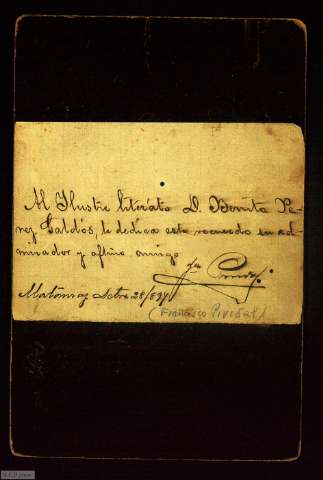 Al Ilustre literáto D. Benito Pe-
rez Galdós, le dedica este recuerdo su ad-
mirador y affmo. amigo
Matanzas Setre. 28/89
(Francisco